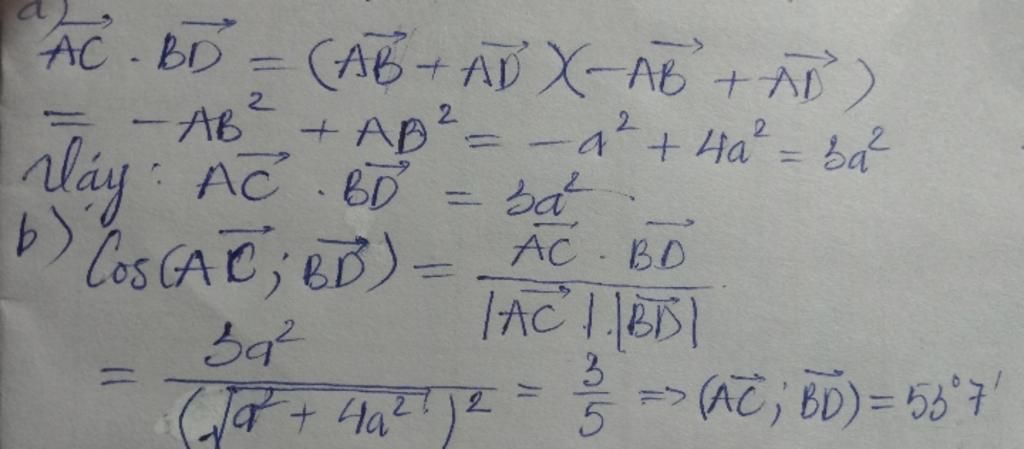 a)
$\overrightarrow{AC} \cdot \overrightarrow{BD} = (\overrightarrow{AB} + \overrightarrow{AD})(-\overrightarrow{AB} + \overrightarrow{AD})$
$= -AB^2 + AD^2 = -a^2 + 4a^2 = 3a^2$
Vậy: $\overrightarrow{AC} \cdot \overrightarrow{BD} = 3a^2$
b) $Cos(\overrightarrow{AC}; \overrightarrow{BD}) = \frac{\overrightarrow{AC} \cdot \overrightarrow{BD}}{|\overrightarrow{AC}| \cdot |\overrightarrow{BD}|}$
$= \frac{3a^2}{(\sqrt{a^2 + 4a^2})^2} = \frac{3}{5} \Rightarrow (\overrightarrow{AC}; \overrightarrow{BD}) = 53°7'$